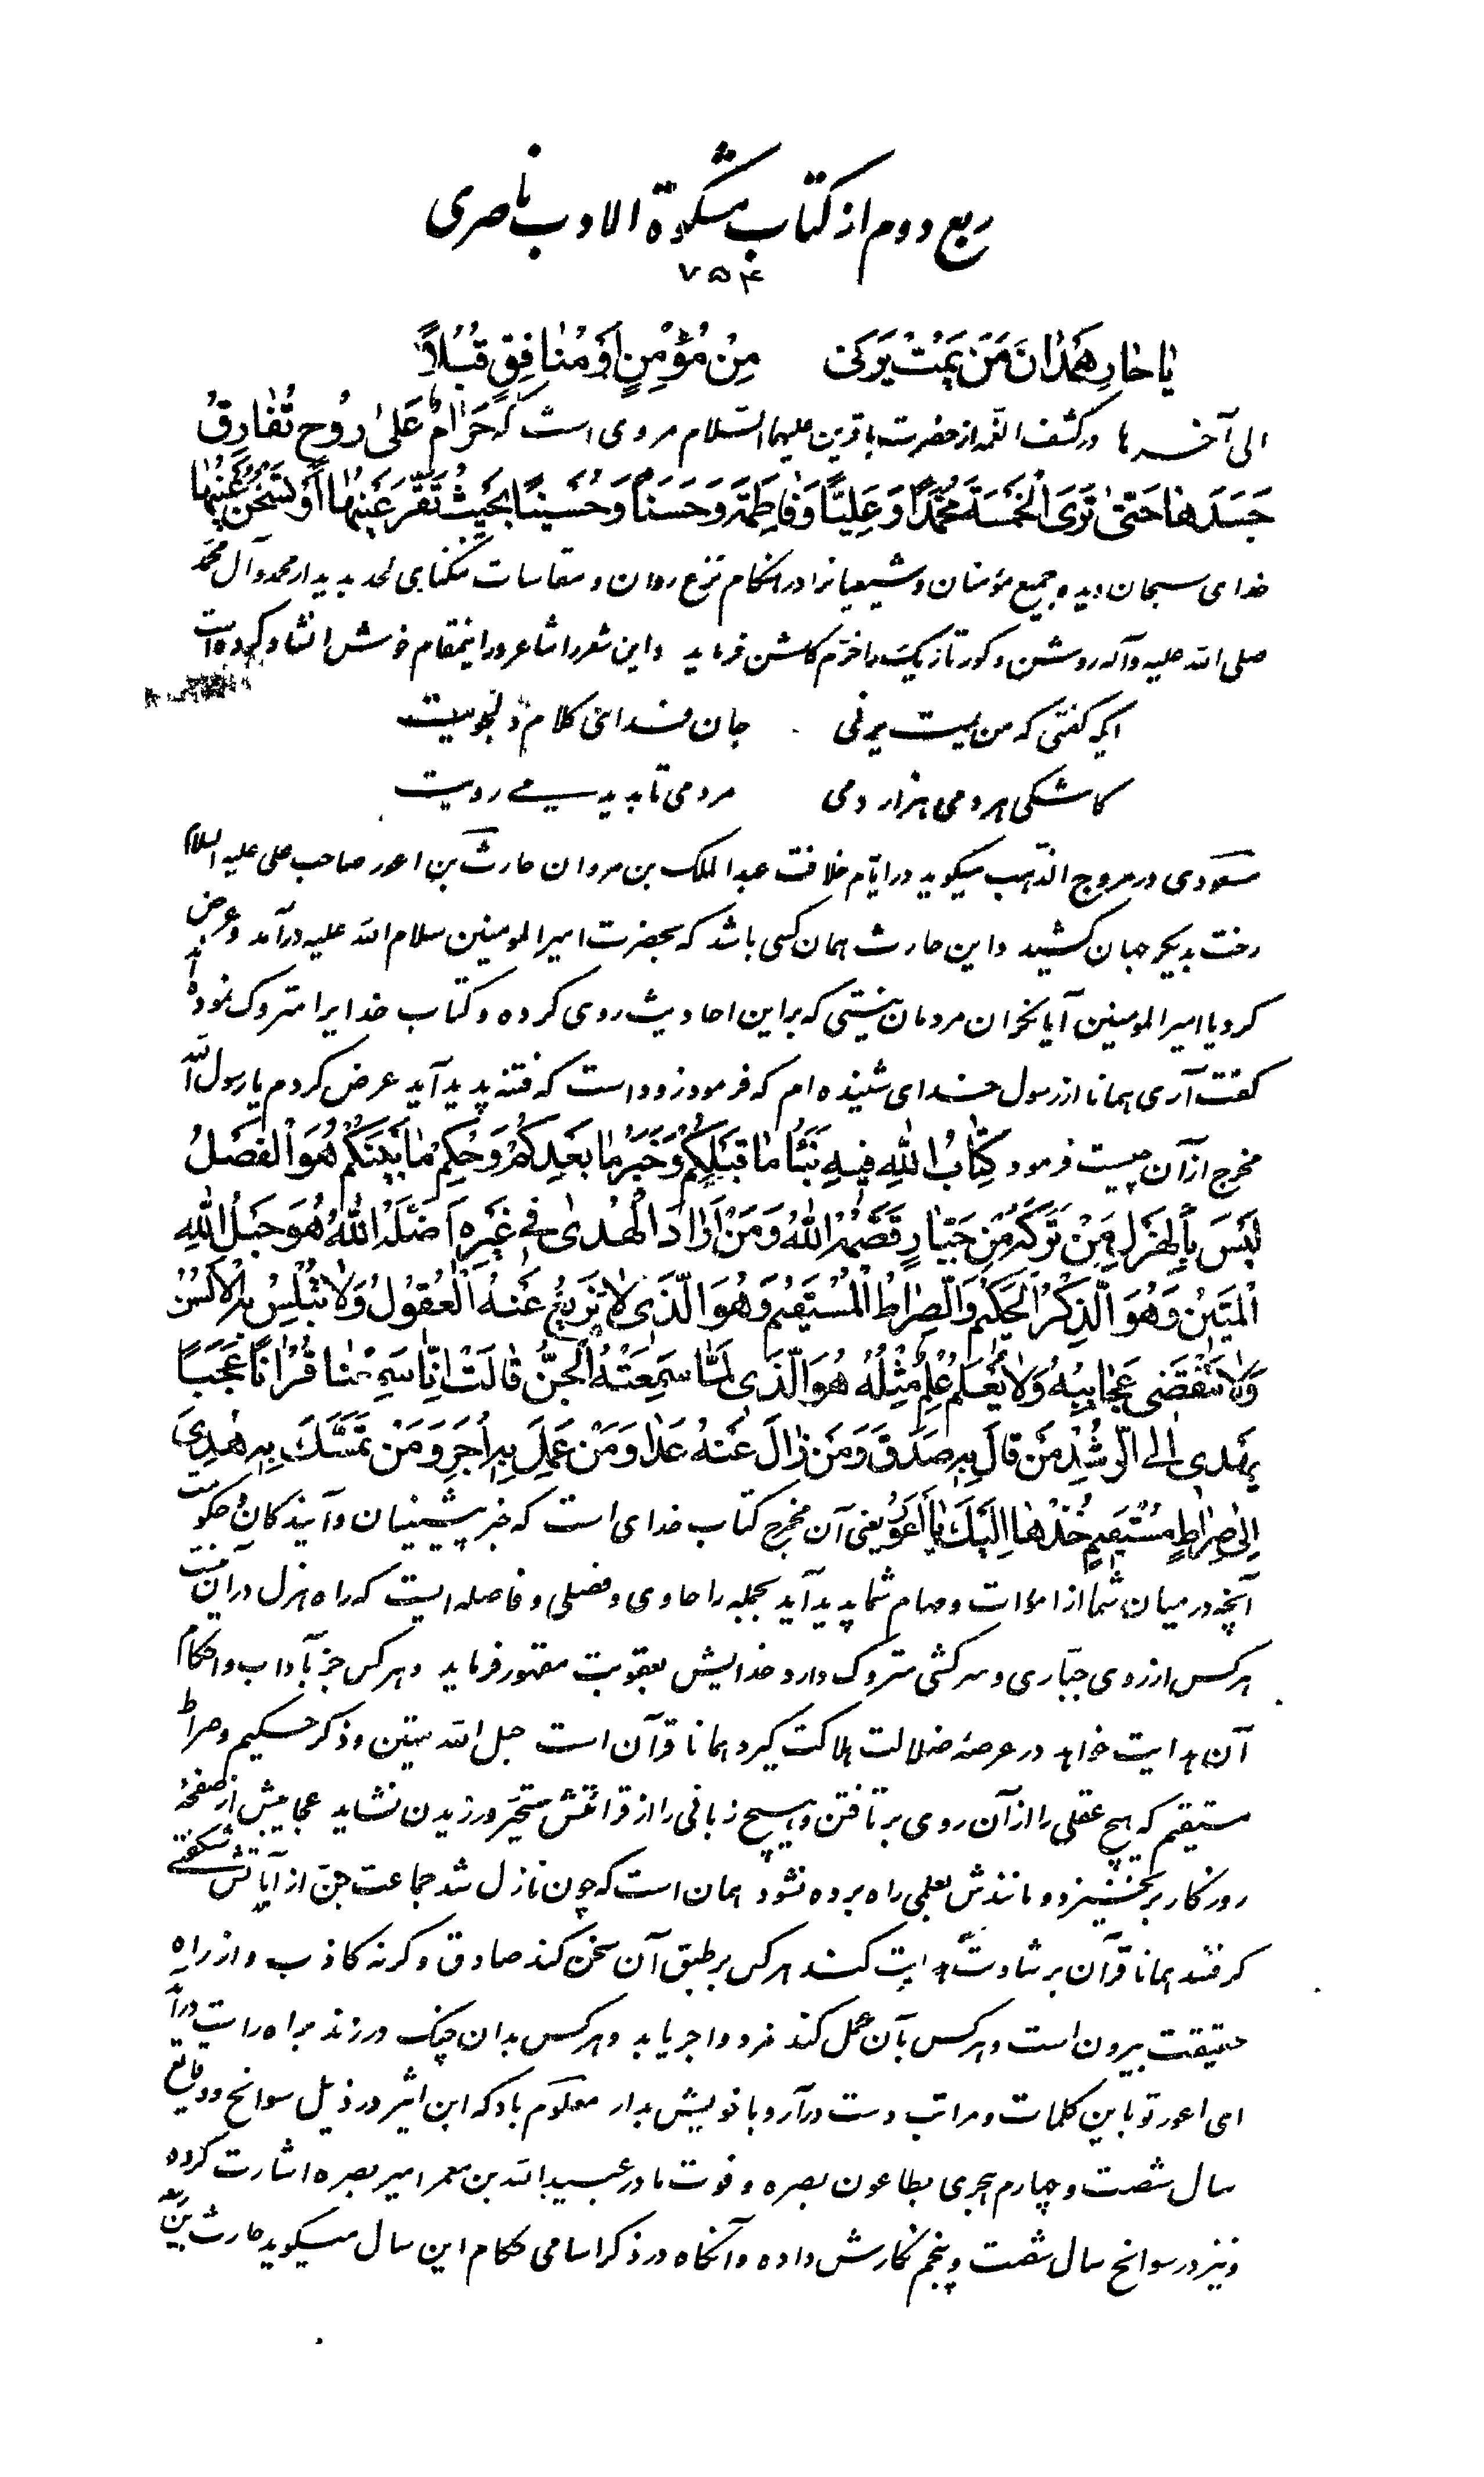 ربع دوم از کتاب مشکوة الادب ناصری
۷۵۴
یا حارِ هَمْدانَ مَنْ یَمُتْ یَرَنی مِنْ مُؤْمِنٍ اَوْ مُنافِقٍ قُبُلاً
الی آخرها در کشف الغمه از حضرت باقرین علیهما السّلام مروی است که حَرامٌ عَلیٰ رُوحٍ تُفارِقُ
جَسَدَها حَتّیٰ تَرَی الْخَمْسَةَ مُحَمَّداً وَ عَلِیّاً وَ فاطِمَةَ وَ حَسَناً وَ حُسَیْناً بِحَیْثُ تَقَرُّ عَیْنُها اَوْ تَسْخَنُ عَیْنُها
خدای سبحان دیده جمیع مؤمنان و شیعیانرا در هنگام نزع روان و مقاسات تنکنای لحد بدیدار محمد و آل محمد
صلی الله علیه وآله روشن و کور تاریک را خرّم کلشن فرماید و این شعر را شاعر در اینمقام خوش انشاد کرده است
ایکه کفتی که من یمت یرنی جان فدای کلام دلجویت
کاشکی هر دمی هزار دمی مردمی تا بدیدمی رویت
مسعودی در مروج الذّهب میکوید در ایّام خلافت عبد الملک بن مروان حارث بن اعور صاحب علی علیه السلام
رخت بدیکر جهان کشید و این حارث همان کسی باشد که بحضرت امیر المومنین سلام الله علیه درآمد و عرض
کرد یا امیر المومنین آیا نکران مردمان نیستی که بر این احادیث روی کرده و کتاب خدایرا متروک نموده اند
کفت آری همانا از رسول خدای شنیده ام که فرمود زود است که فتنه پدید آید عرض کردم یا رسول الله
مخرج از آن چیست فرمود کِتابُ اللهِ فیهِ نَبَأُ ما قَبْلَکُمْ وَ خَبَرُ ما بَعْدَکُمْ وَ حُکْمُ ما بَیْنَکُمْ هُوَ الْفَصْلُ
لَیْسَ بِالْهَزْلِ مَنْ تَرَکَهُ مِنْ جَبّارٍ قَصَمَهُ اللهُ وَ مَنْ اَرادَ الْهُدیٰ فی غَیْرِهِ اَضَلَّهُ اللهُ هُوَ حَبْلُ اللهِ
الْمَتینُ وَ هُوَ الذِّکْرُ الْحَکیمُ وَ الصِّراطُ الْمُسْتَقیمُ وَ هُوَ الَّذی لا تَزیغُ عَنْهُ الْعُقُولُ وَ لا تَلْبِسُ بِهِ الْاَلْسُنُ
وَ لا تَنْقَضی عَجایِبُهُ وَ لا یُعْلَمُ عِلْمٌ مِثْلُهُ هُوَ الَّذی لَمّا سَمِعَتْهُ الْجِنُّ قالَتْ اِنّا سَمِعْنا قُرْاناً عَجَباً
یَهْدی اِلَی الرُّشْدِ مَنْ قالَ بِهِ صَدَقَ وَ مَنْ زالَ عَنْهُ عَدا وَ مَنْ عَمِلَ بِهِ اُجِرَ وَ مَنْ تَمَسَّکَ بِهِ هُدِیَ
اِلیٰ صِراطٍ مُسْتَقیمٍ خُذْها اِلَیْکَ یا اَعْوَرُ یعنی آن مخرج کتاب خدای است که خبر پیشینیان و آیندکان و حکومت
آنچه در میان شما از امؤات و مهام شما پدید آید بجمله را حاوی و فضلی و فاصله ایست که راه هزل در آن نیست
هر کس از روی جبّاری و سرکشی متروک دارد خدایش بعقوبت مقهور فرماید و هر کس جز بآداب و احکام
آن هدایت خواهد در عرصهٔ ضلالت هلاکت کیرد همانا قرآن است حبل الله متین و ذکر حکیم و صراط
مستقیم که هیچ عقلی را از آن روی بر تافتن و هیچ زبانی را از قرائتش متحیّر ورزیدن نشاید عجایبش از صفحهٔ
روزکار بر نخیزد و مانندش بعلمی راه برده نشود همان است که چون نازل شد جماعت جن از آیاتش شکفتی
کرفتند همانا قرآن بر شادت هدایت کند هر کس بر طبق آن سخن کند صادق و کرنه کاذب و از راه
حقیقت بیرون است و هر کس بآن عمل کند مزد و اجر یابد و هر کس بدان چنک در زند براه راست درآید
ای اعور تو باین کلمات و مراتب دست درآر و با خویش بدار معلوم باد که ابن اثیر در ذیل سوانح و وقایع
سال شصت و چهارم هجری بطاعون بصره و فوت مادر عبیدالله بن معمر امیر بصره اشارت کرده
و نیز در سوانح سال شصت و پنجم نکارش داده و آنکاه در ذکر اسامی حکام این سال میکوید حارث بن